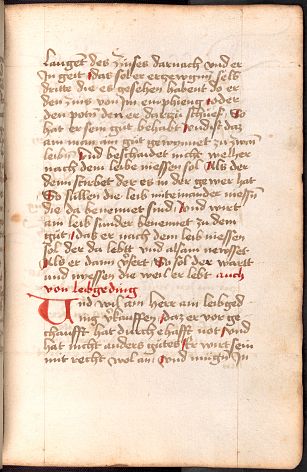 laugent des zinses darnach und er
In geit / das sol er erzewgnn selb
dritte die es gesehen habent do er
den zins von Im emphieng / oder
den potn den er darzu schuef / So
hat er sein gut behabt / Und ist daz
ain man ain gut gewinnet zu zwain
leibn / Und beschaidet nicht welher
nach dem leibe niessen sol Als der
denn stirbet der es in der gewer hat
So sullen die leib miteinander niessn
die da benennet sind / Und wirt
ain leib sunder benennet zu dem
gut / dab er nach dem leib niessen
sol der da lebtt und alsam neusset
Als er dann So sol der wartt
und niessen die weil er lebt auch
von leibgeding
Und wil ain herr ain leibged
ing vkauffen / daz er vor ge
chaufft hat durch ehafft not / und
hat nicht anders gutes / Er wirt sein
mit recht wol an / Und mugn In